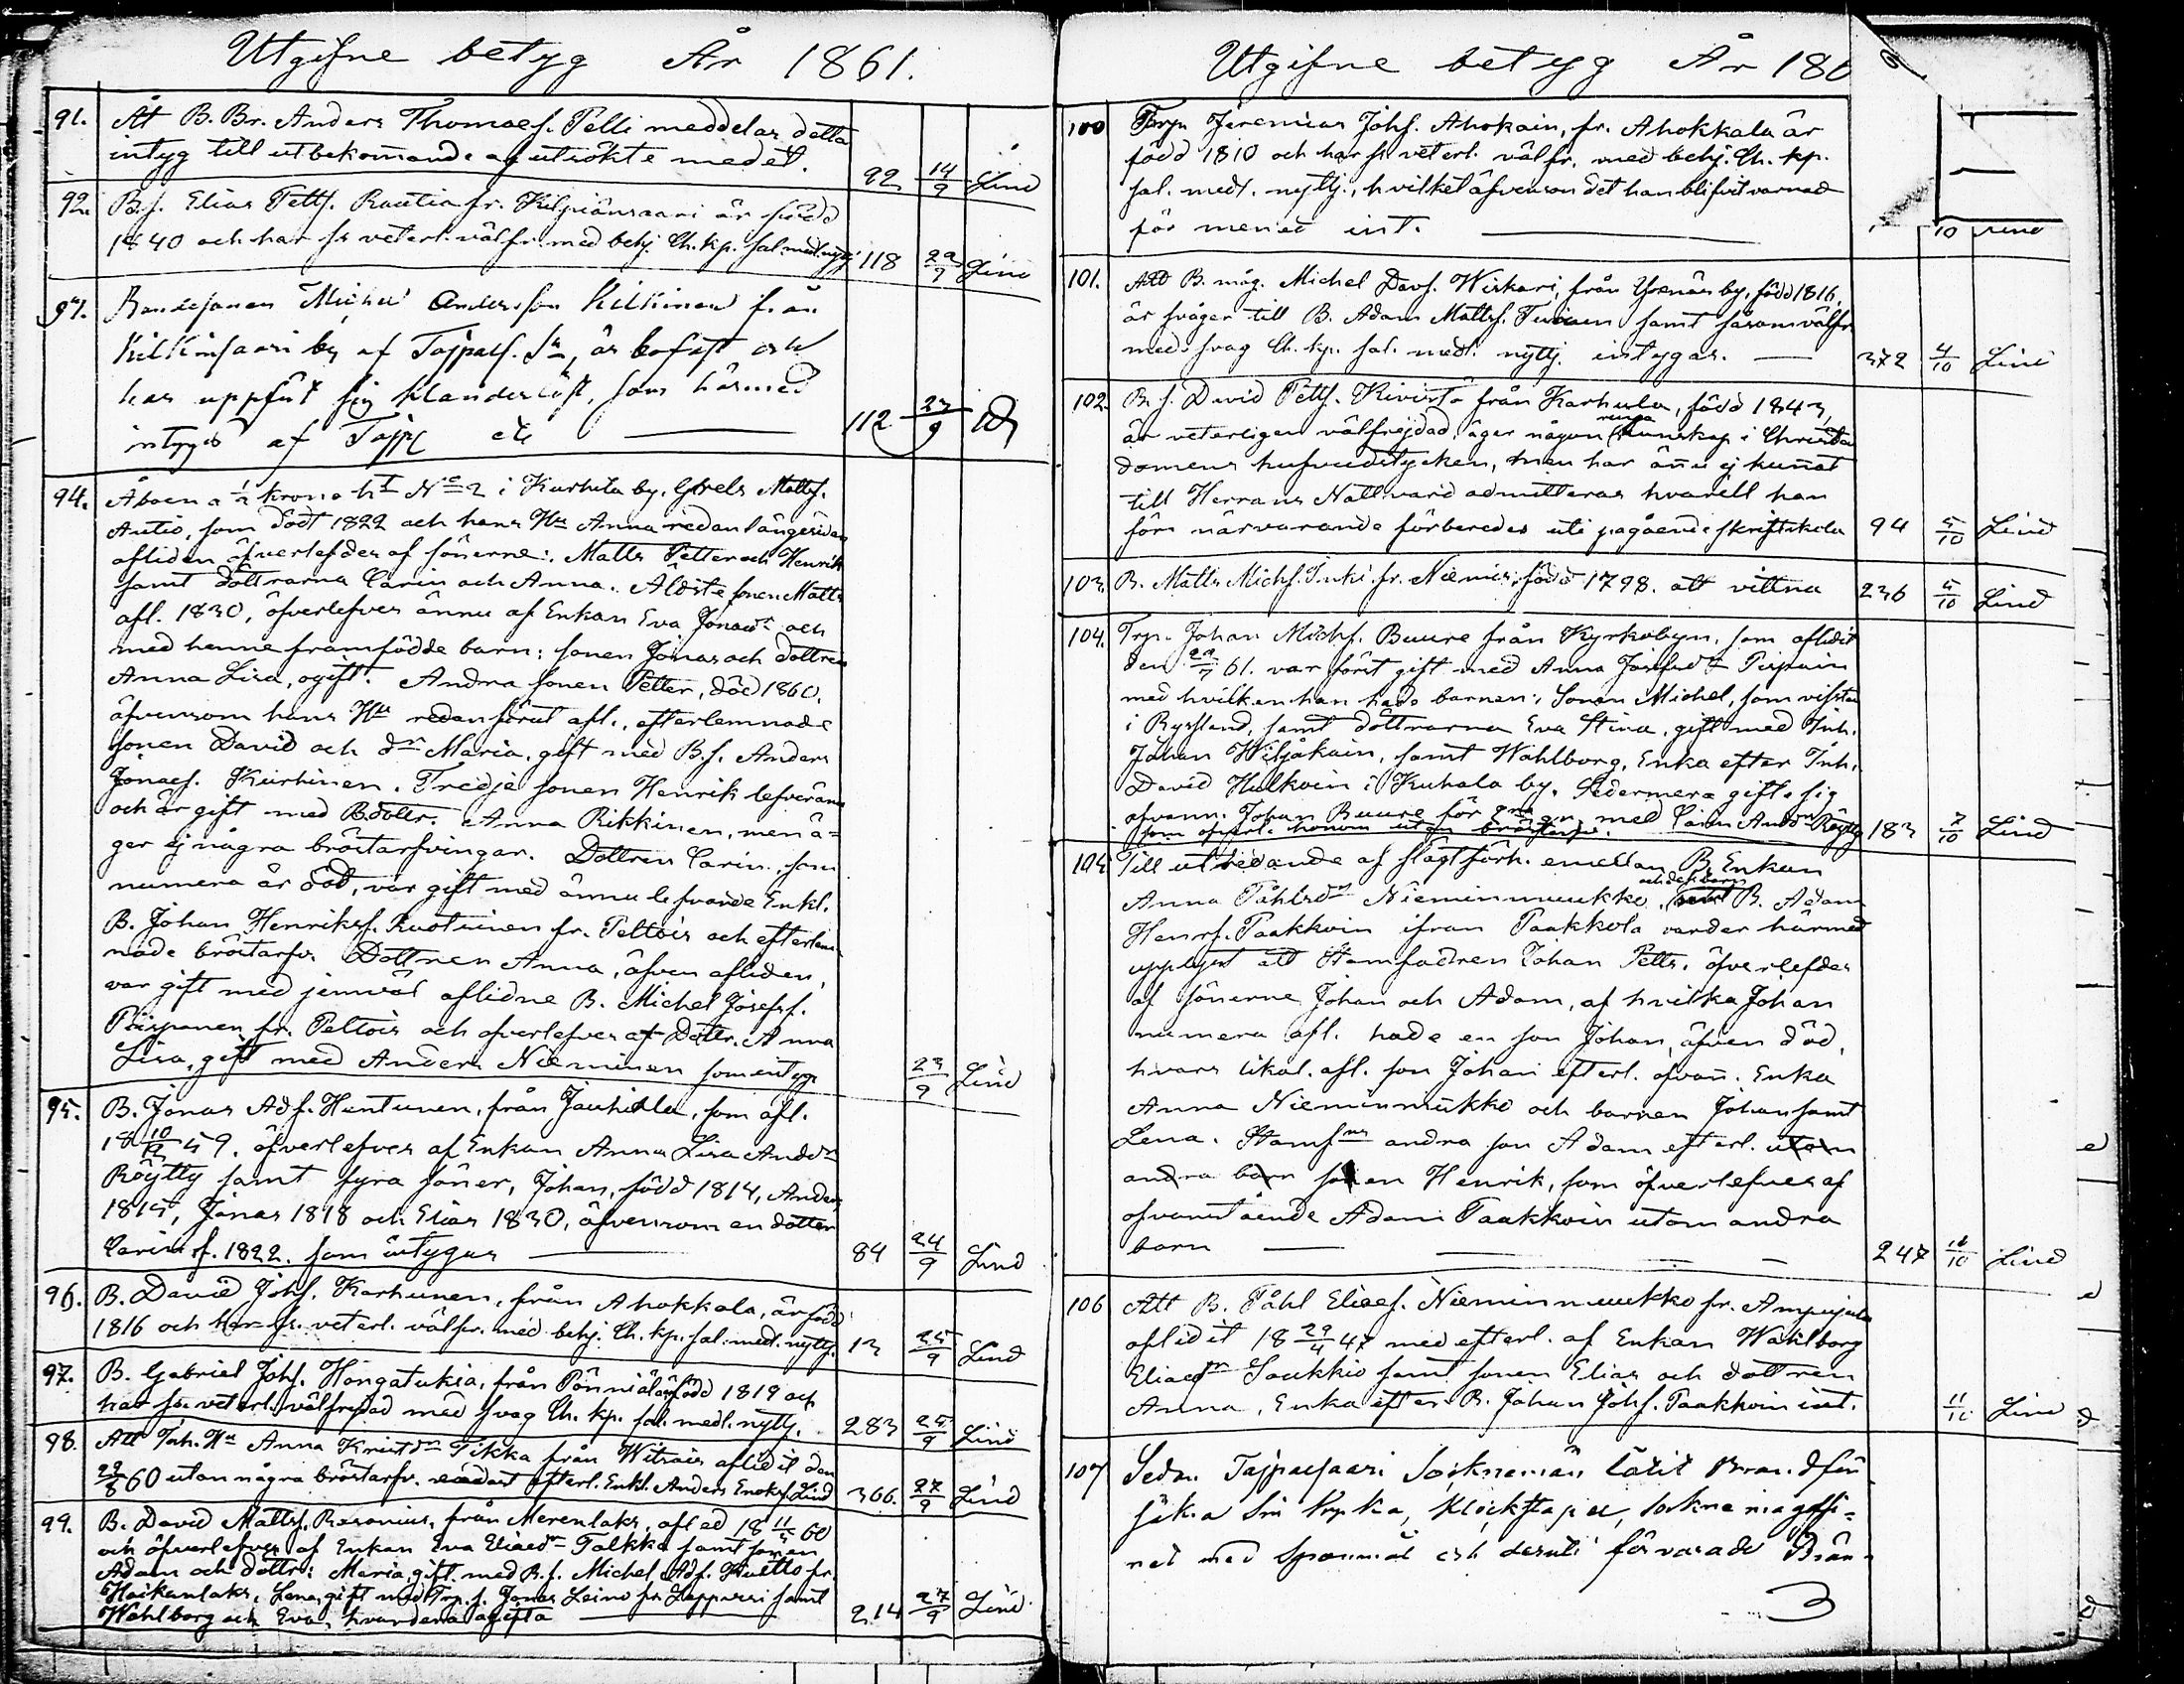 Utgifne betyg År 1861.
91. Åt B. Br. Anders Thomaes. Pelli meddelas detta
intyg till utbekommande af utsökte medel. 92 14/9 Lind
92. B.s. Elias Petts. Rautia fr. Kilpiänsaari är född
1840 och har sr veterl. välfr. med behj. Ch. kp. sal. med. nyttj. 118 20/9 Lind
Bondesonen Michel Andersson Kilkinen från
Kilkinsaari by af Tajpals. Sn, är bofast och
har uppfört sig klanderlöst, som härmed
intygas af Tajpl etc 112 23/9
94. Åboen a ½ krono ht No 2 i Kurhila by, Grels Matts.
Autio, som dödt 1822 och hans Hu Anna redan längesedan
afliden öfverlefdes af sönerne: Matts Petter och Henrik
samt döttrarna Carin och Anna. Äldste sonen Matts
afl. 1830, öfverlefves ännu af Enkan Eva Jonaedr och
med henne framfödde barn: sonen Jonas och dottren
Anna Lisa, ogift. Andra sonen Petter, död 1860,
äfvensom hans Hu redan förut afl., efterlemnade
sonen David och dr Maria, gift med B.s. Anders
Jonaes. Kurhinen. Tredje sonen Henrik lefver ännu
och är gift med Bdottr. Anna Rikkinen, men ä-
ger ej några bröstarfvingar. Dottren Carin, som
numera är död, var gift med ännu lefvande Enkl.
B. Johan Henrikss. Ruotsinen fr. Peltois och efterlem-
nade bröstarfv. Dottren Anna, äfven afliden,
var gift med jemväl aflidne B. Michel Josefs.
Piispanen fr. Peltois och öfverlefves af Dottr. Anna
Lisa, gift med Anders Nieminen som intyg. 23/9 Lind
95. B. Jonas Ads. Hentunen, från Jauhiala, som afl.
18 10/12 59, öfverlefves af Enkan Anna Lisa Anddr
Röytty samt fyra söner, Johan, född 1814, Anders
1815, Jonas 1818 och Elias 1830, äfvensom en dotter
Carin f. 1822. som intygas 84 24/9 Lind
96. B. David Johs. Karhunen, från Ahokkala, är född
1816 och har sr. veterl. välfr. med behj. Ch. kp. sal. med. nyttj. 13 25/9 Lind
97. B. Gabriel Johs. Hongatukia, från Pönniälä född 1819 och
har sr. veterl. välfrejdad med svag Ch. kp. sal. medl. nyttj. 283 25/9 Lind
98. Att Inh. Hu Anna Kristdr Tikka från Witsais aflidit den
29/8 60 utan några bröstarfv. endast efterl. Enkl. Anders Enoks. Lind 366. 27/9 Lind
99. B. David Matts. Rasonius, från Merenlaks, afled 18 11/5 60
och öfverlefves af Enkan Eva Eliaedr Talkka samt sonen
Adam och döttr: Maria, gift med B.s. Michel Ads. Kultto fr.
Haikanlaks, Lena, gift med Trp.s. Jonas Leino fr. Lappurri samt
Wahlborg och Eva, hvardera ogifta 214 27/9 Lind
Utgifne betyg År 186
100 Torp. Jeremias Johs. Ahokain, fr. Ahokkala är
född 1810 och har sr veterl. välfr. med behj. Ch. kp.
sal. medl. nyttj., hvilket äfvensom det han blifvit varnad
för mened int. 10 Lind
101. Att B. måg. Michel Davs. Wirkari, från Yrenäs by, född 1816,
är svåger till B. Adam Matts. Tuiain samt såsom välfr.
med svag Ch. kp. sal. medl. nyttj. intygas. 372 4/10 Lind
102. B.s. David Petts. Kivistö från Karhula, född 1843,
är veterligen välfrejdad, äger någon ringa kunskap i Christen
domens hufvudstycken, men har ännu ej kunnat
till Herrans Nattvard admitteras hvartill han
för närvarande förberedes uti pågående skriftskola 94 5/10 Lind
103. B. Matts Michs. Inki fr. Niemis, född 1798. att vittna 236 5/10 Lind
104. Trp. Johan Michs. Buure från Kyrkobyn, som aflidit
den 29/7 61. var först gift med Anna Josefsdr Piipain
med hvilken han hade barnen: Sonen Michel, som vistas
i Ryssland, samt döttrarna Eva Stina, gift med Inh.
Johan Wiljakain, samt Wahlborg, Enka efter Inh.
David Hulkoin i Kuhala by. Sedermera gifte sig
ofvann. Johan Buure för 2dra gn. med Carin Anddr Röytty
som öfverl. honom utan bröstarfv. 183 7/10 Lind
105 Till utredande af slägtförh. emellan B. Enkan
Anna Påhlsdr Nieminmuukko och des barn B. Adam
Henrs. Paakkoin ifrån Paakkola varder härmed
upplyst att Stamfadren Johan Petts. öfverlefdes
af sönerne Johan och Adam, af hvilka Johan
numera afl. hade en son Johan, äfven död,
hvars likal. afl. son Johan efterl. ofvann. Enka
Anna Nieminmukko och barnen Johan samt
Lena. Stamfns andra son Adam efterl. utom
andra barn sonen Henrik, som öfverlefves af
ofvanstående Adam Paakkoin utom andra
barn 247 10/10 Lind
106 Att B. Påhl Eliaes. Nieminmuukko fr. Ampujala
aflidit 18 29/4 47 med efterl. af Enkan Wahlborg
Eliaedr Saukkio samt sonen Elias och dottren
Anna, Enka efter B. Johan Johs. Paakkoin int. 11/10 Lind
107 Sedan Tajpalsaari Sockneman låtit Brandför
säkra sin kyrka, klockstapel, sockne magasi-
net med Spannmål och deruti förvarade Brän-